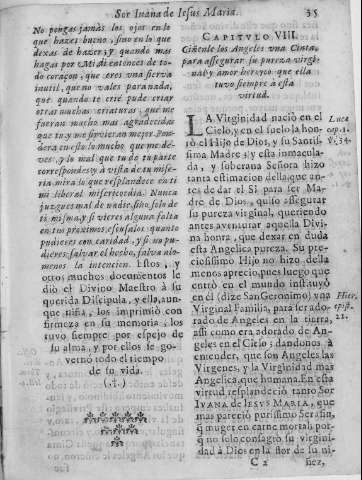 Sor Iuana de Iesus Maria. 35
No pongas jamàs los ojos en lo
que hazes bueno, sino en lo que
dexas de hazer; y quando mas
hagas por Mi di entonces de to-
do coraçon, que eres vna sierva
inutil, que no vales para nada,
que quando te criè pude criar
otras muchas criaturas, que me
fueran mucho mas agradecidas
que tu y me sirvieran mejor. Pon-
dera en esto lo mucho que me de-
ves, y lo mal que tu de tu parte
correspondes: y à vista de tu mise-
ria mira lo que resplandece en ti
mi liberal misericordia. Nunca
juzgues mal de nadie, sino solo de
ti misma, y si vieres alguna falta
en tus proximos, escusalos quanto
pudieres con caridad, y si no pu-
dieres salvar el hecho, salva alo-
menos la intencion. Estos, y
otros muchos documentos le
diò el Divino Maestro à su
querida Discipula, y ella, aun-
que niña, los imprimiò con
firmeza en su memoria, los
tuvo siempre por espejo de
su alma, y por ellos se go-
vernò todo el tiempo
de su vida.
(.†.)
CAPITULO VIII.
Ciñenle los Angeles vna Cinta,
para assegurar su pureza virgi-
nal, y amor heroyco que ella
tuvo siempre à esta
virtud.
LA Virginidad naciò en el
Cielo, y en el suelo la hon-
rò el Hijo de Dios, y su Santis-
sima Madre: y esta inmacula-
da, y soberana Señora hizo
tanta estimacion della, que an-
tes de dar el SI para ser Ma-
dre de Dios, quiso assegurar
su pureza virginal, queriendo
antes aventurar aquella Divi-
na honra, que dexar en duda
esta Angelica pureza. Su pre-
ciosissimo Hijo no hizo della
menos aprecio, pues luego que
entrò en el mundo instituyò
en el (dize San Geronimo) vna
Virginal Familia, para ser ado-
rado de Angeles en la tierra,
assi como era adorado de An-
geles en el Cielo; dandonos à
entender, que son Angeles las
Virgenes, y la Virginidad mas
Angelica, que humana. En esta
virtud resplandeciò tanto Sor
IVANA DE IESVS MARIA, que
mas pareciò purissimo Serafin,
q̃ muger en carne mortal; por-
q̃ no solo consagrò su virgini-
dad à Dios en la flor de su ni-
Luca
cap. 1.
v. 34.
Hier.
epist.
22.
C 2 ñez,